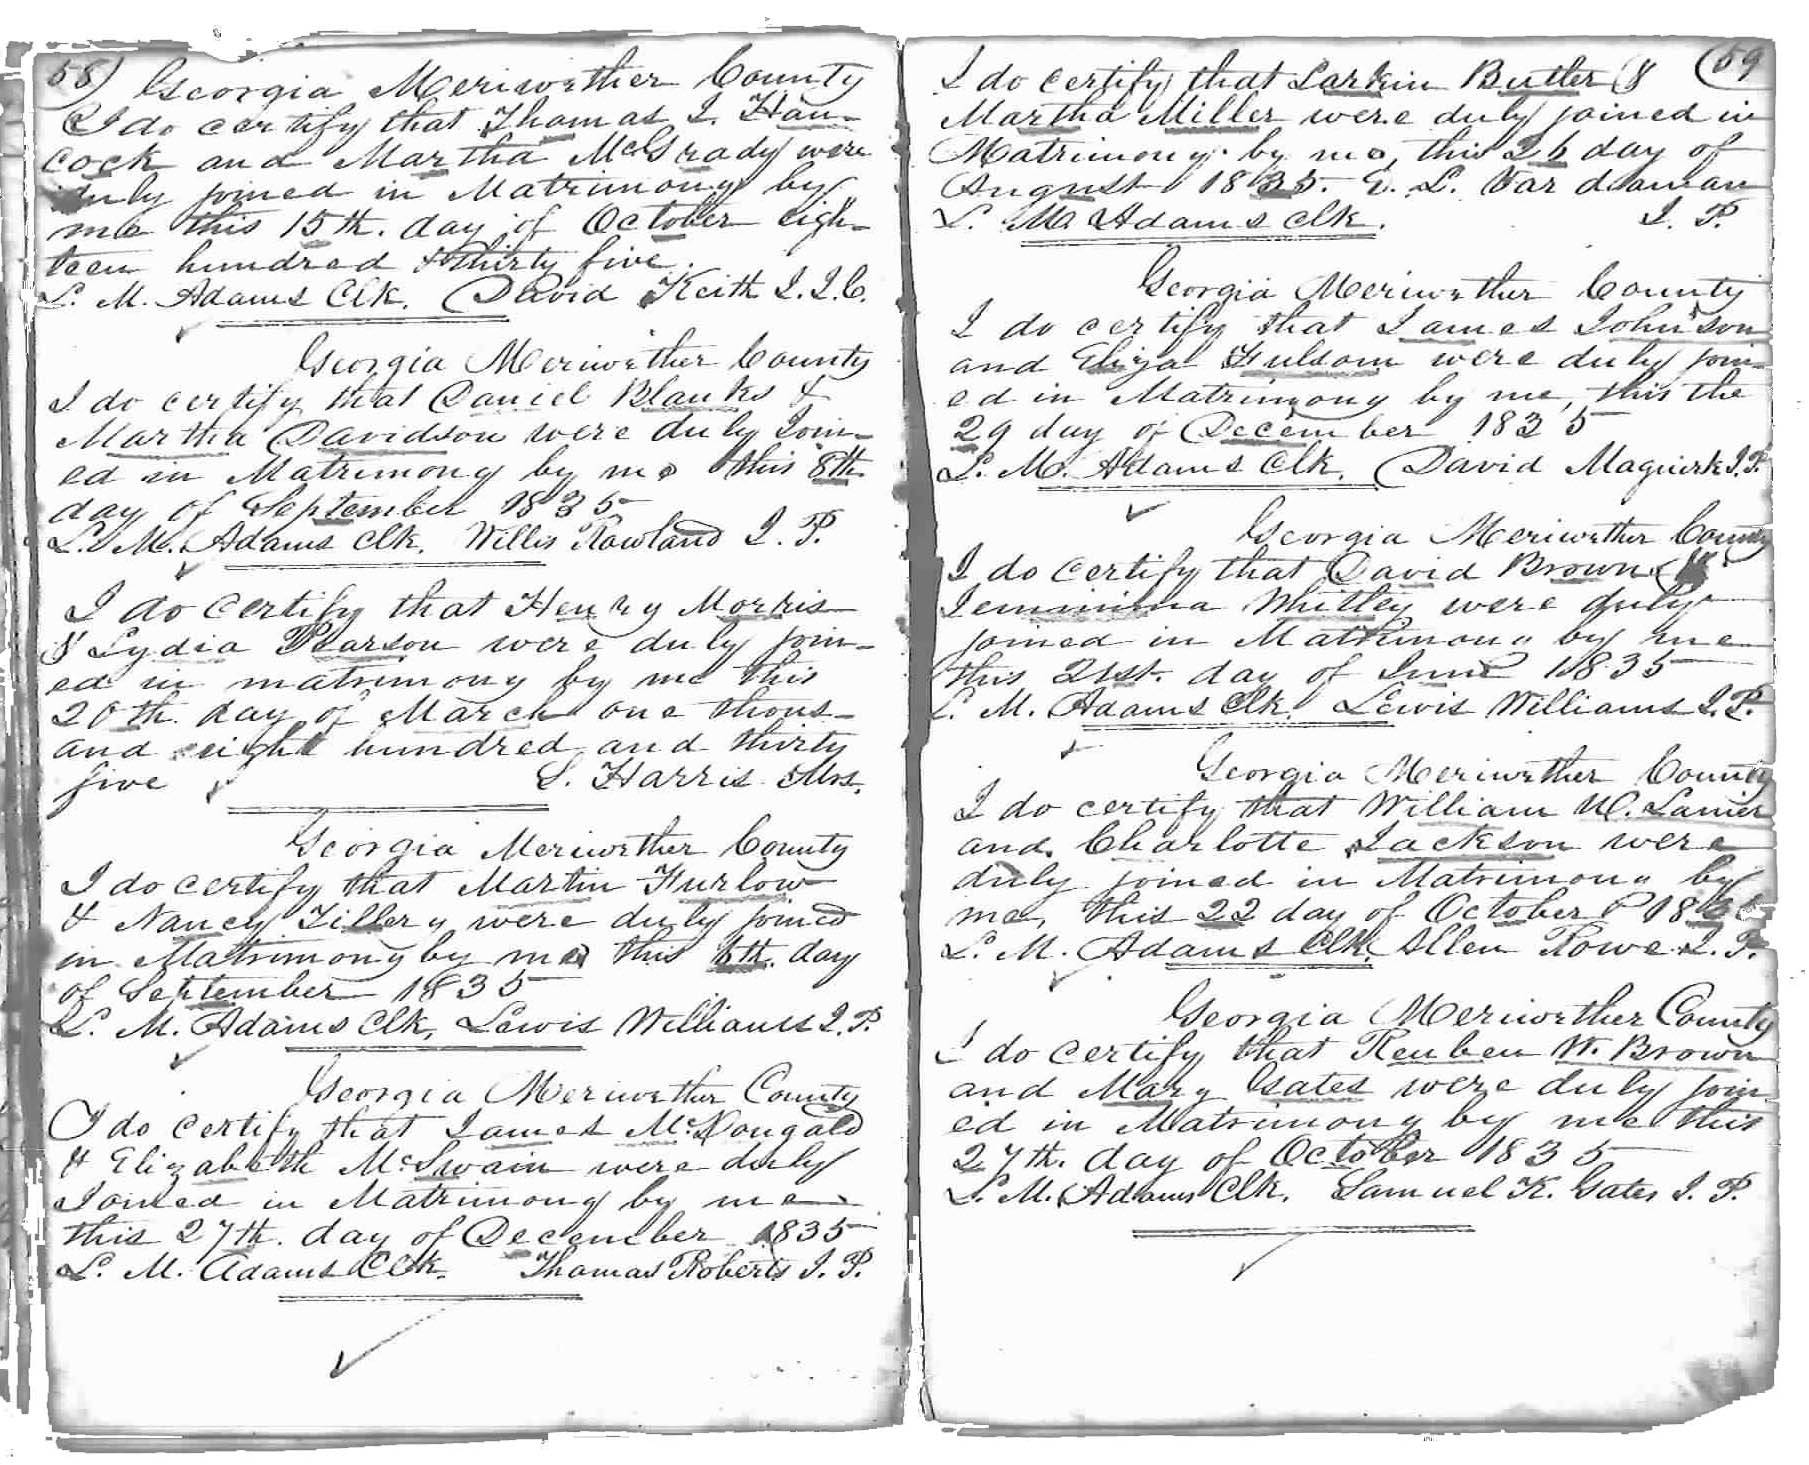 58)
Georgia Meriwether County
I do certify that Thomas J. Han-
cock and Martha McGrady were
duly joined in Matrimony by
me this 15th. day of October eigh-
teen hundred & thirty five.
L. M. Adams Clk. David Keith J.I.C.
Georgia Meriwether County
I do certify that Daniel Blanks &
Martha Davidson were duly Join-
ed in Matrimony by me this 8th
day of September 1835
L. M. Adams Clk. Willis Rowland J. P.
I do certify that Henry Morris
& Lydia Pearson were duly join-
ed in matrimony by me this
20th day of March one thous-
and eight hundred and thirty
five S. Harris Mn.
Georgia Meriwether County
I do certify that Martin Furlow
& Nancy Tillery were duly joined
in Matrimony by me this 6th. day
of September 1835
L. M. Adams Clk, Lewis Williams J.P.
Georgia Meriwether County
I do certify that James McDougald
& Elizabeth McSwain were duly
Joined in Matrimony by me
this 27th. day of December 1835
L. M. Adams Clk. Thomas Roberts J. P.
(59
I do certify that Larkin Butler &
Martha Miller were duly joined in
Matrimony by me, this 26 day of
August 1835. E. L. Vardaman
L. M. Adams Clk. J. P.
Georgia Meriwether County
I do certify that James Johnson
and Eliza Fulsom were duly join-
ed in Matrimony by me, this the
29 day of December 1835
L. M. Adams Clk. David Maguirk J.P.
Georgia Meriwether County
I do certify that David Brown &
Jemimima Whitley were duly
joined in Matrimony by me
this 21st. day of June 1835
L. M. Adams Clk. Lewis Williams J.P.
Georgia Meriwether County
I do certify that William W. Lanier
and Charlotte Jackson were
duly joined in Matrimony by
me, this 22 day of October
L. M. Adams Clk. Allen Rowe J. P.
Georgia Meriwether County
I do certify that Reuben W. Brown
and Mary Gates were duly join
ed in Matrimony by me this
27th. day of October 1835
L. M. Adams Clk. Samuel K. Gates J. P.